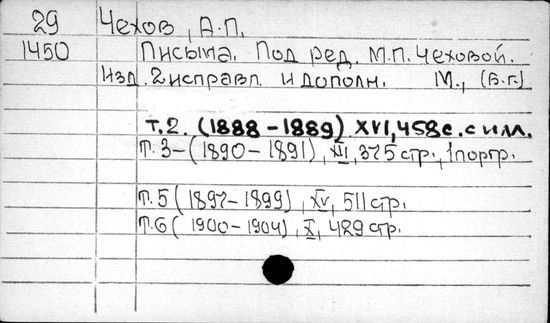 29 Чехов, А.П.
1450 Письма. Под ред. М.П. Чеховой.
Изд. 2 исправл. и дополн. М., (Б.г.)
Т.2. (1888-1889) XVI, 458с. с илл.
Т. 3-(1890-1891), XIII, 375 стр., 1 портр.
Т.5 (1897-1899), XV, 511 стр.
Т.6 ( 1900-1904), X, 429 стр.